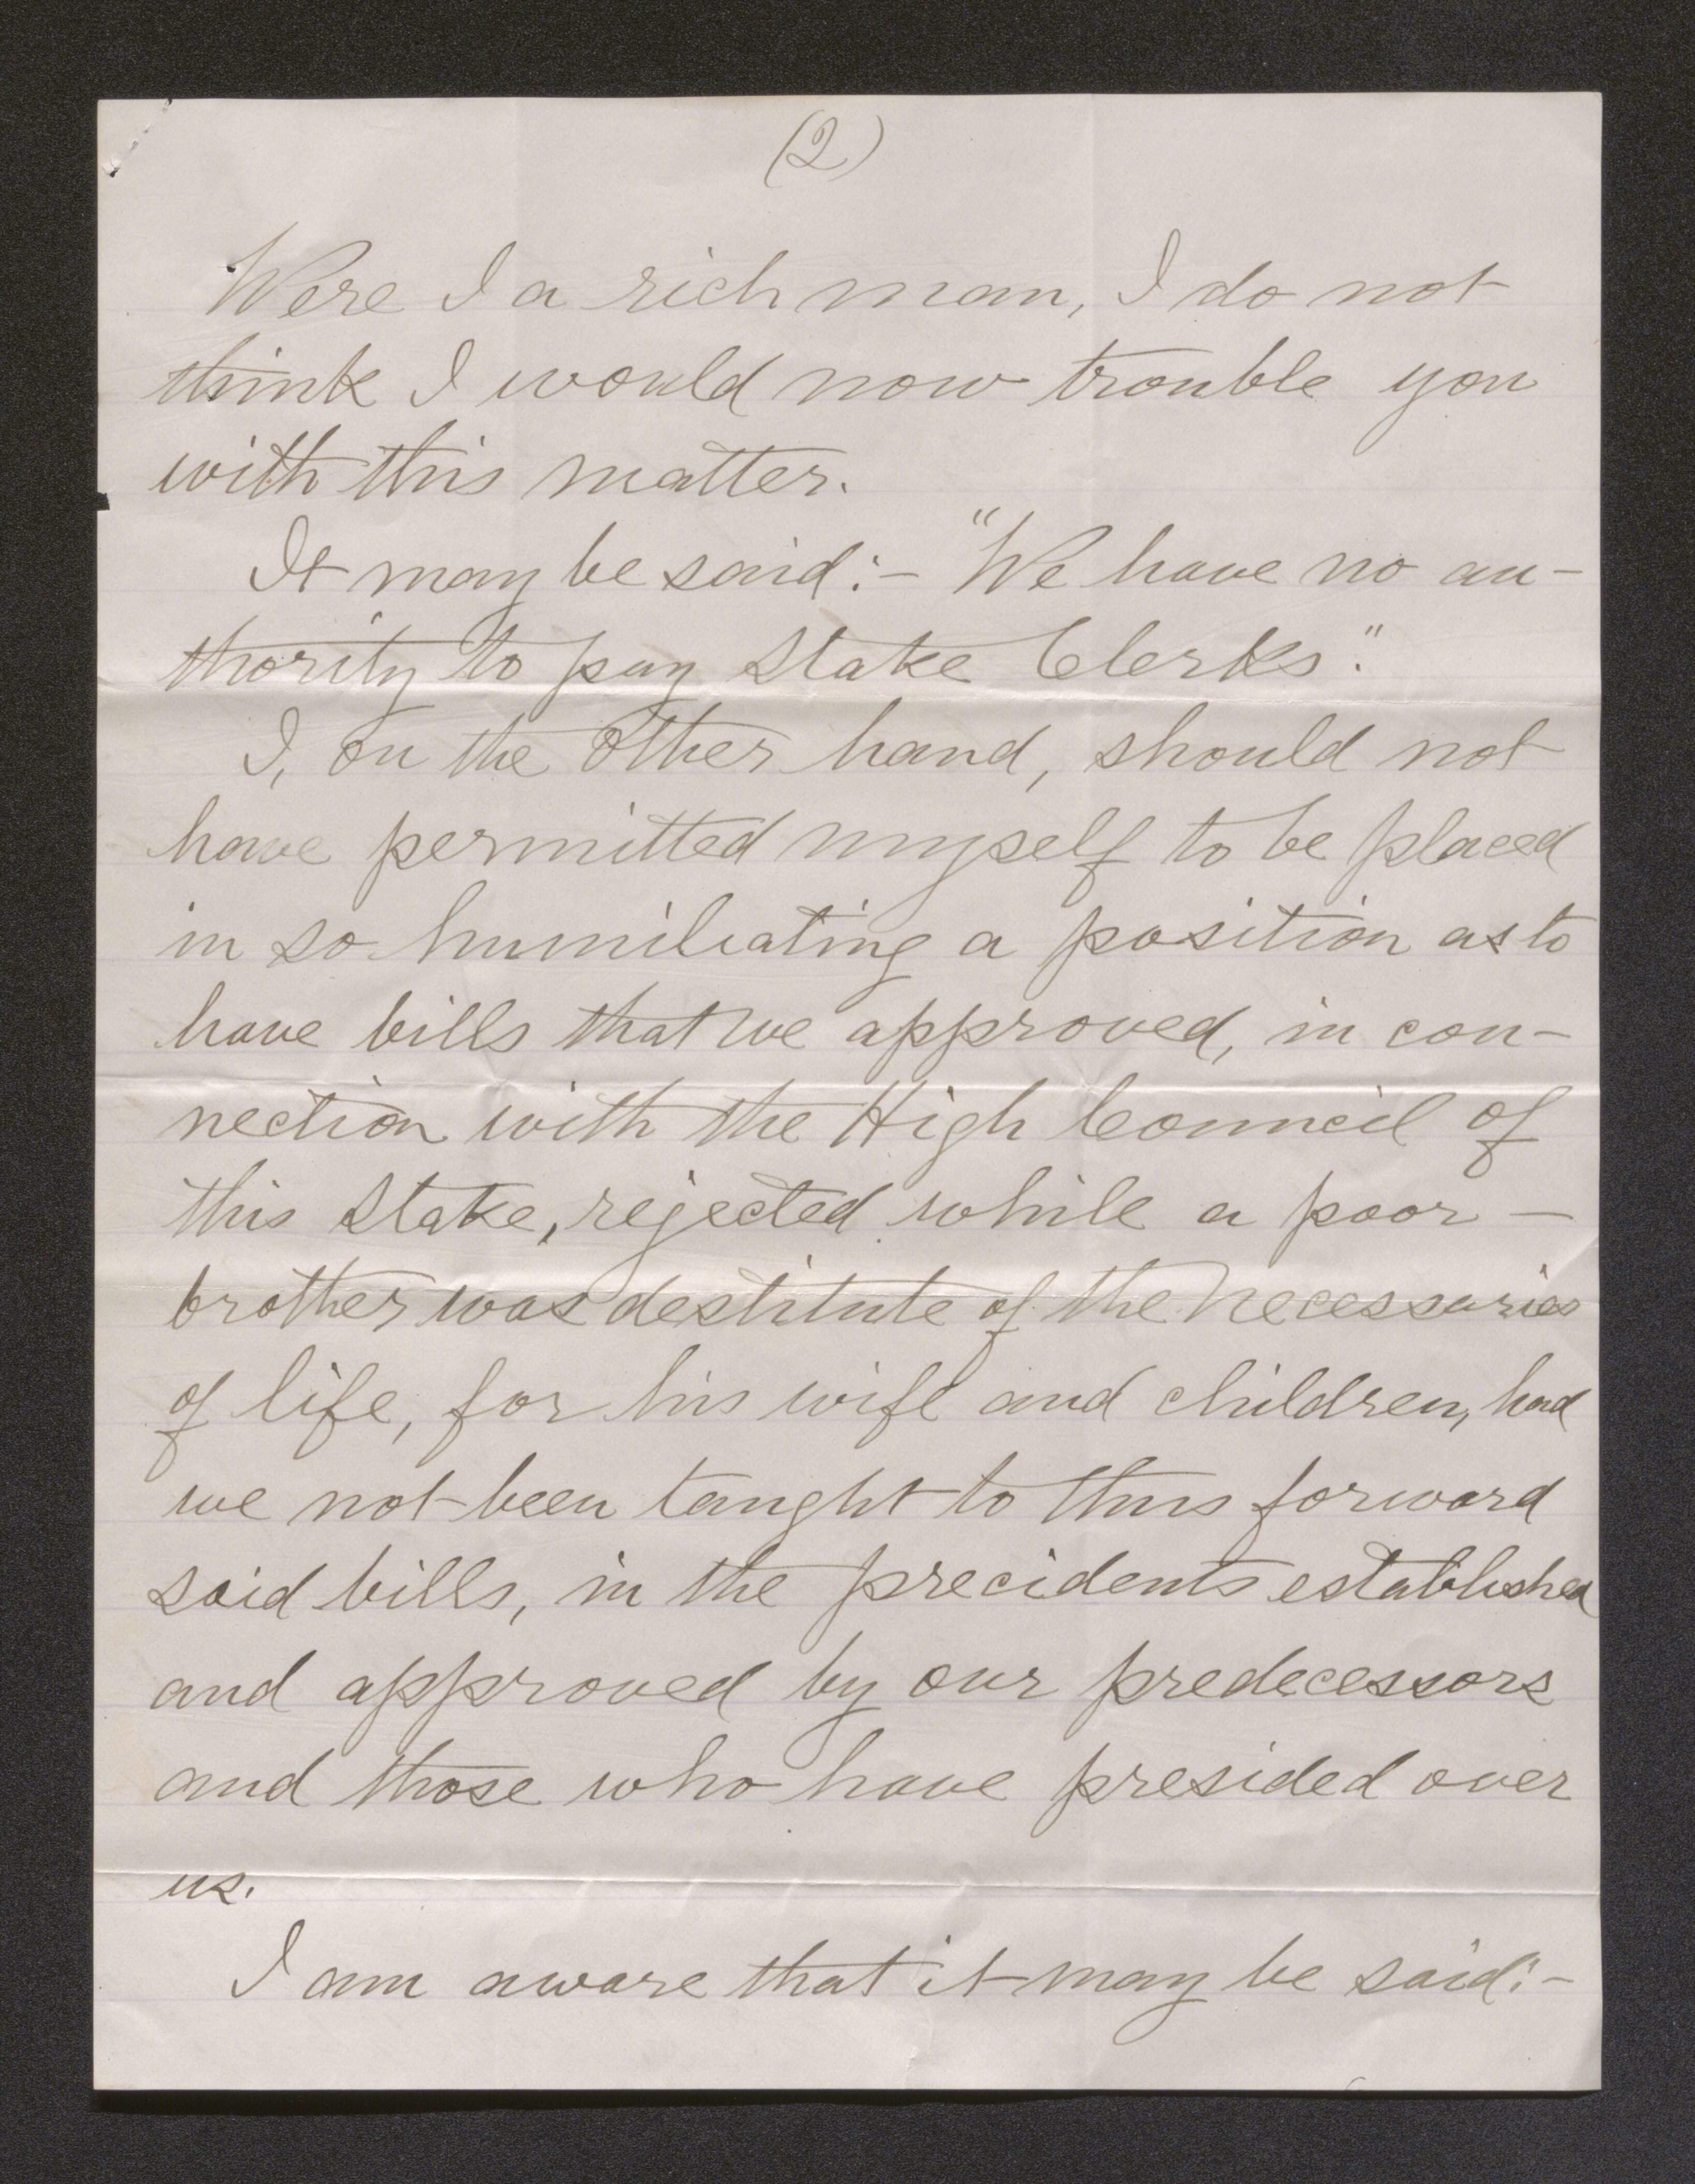 (2)
Were I a rich man, I do not
think I would now trouble you
with this matter.
It may be said:- "We have no au-
thority to pay Stake Clerks."
I, on the other hand, should not
have permitted myself to be placed
in so humiliating a position as to
have bills that we approved, in con-
nection with the High Council of
this Stake, rejected while a poor -
brother was destitute of the necessaries
of life, for his wife and children, had
we not been taught to thus forward
said bills, in the precidents established
and approved by our predecessors
and those who have presided over
us.
I am aware that it may be said:-